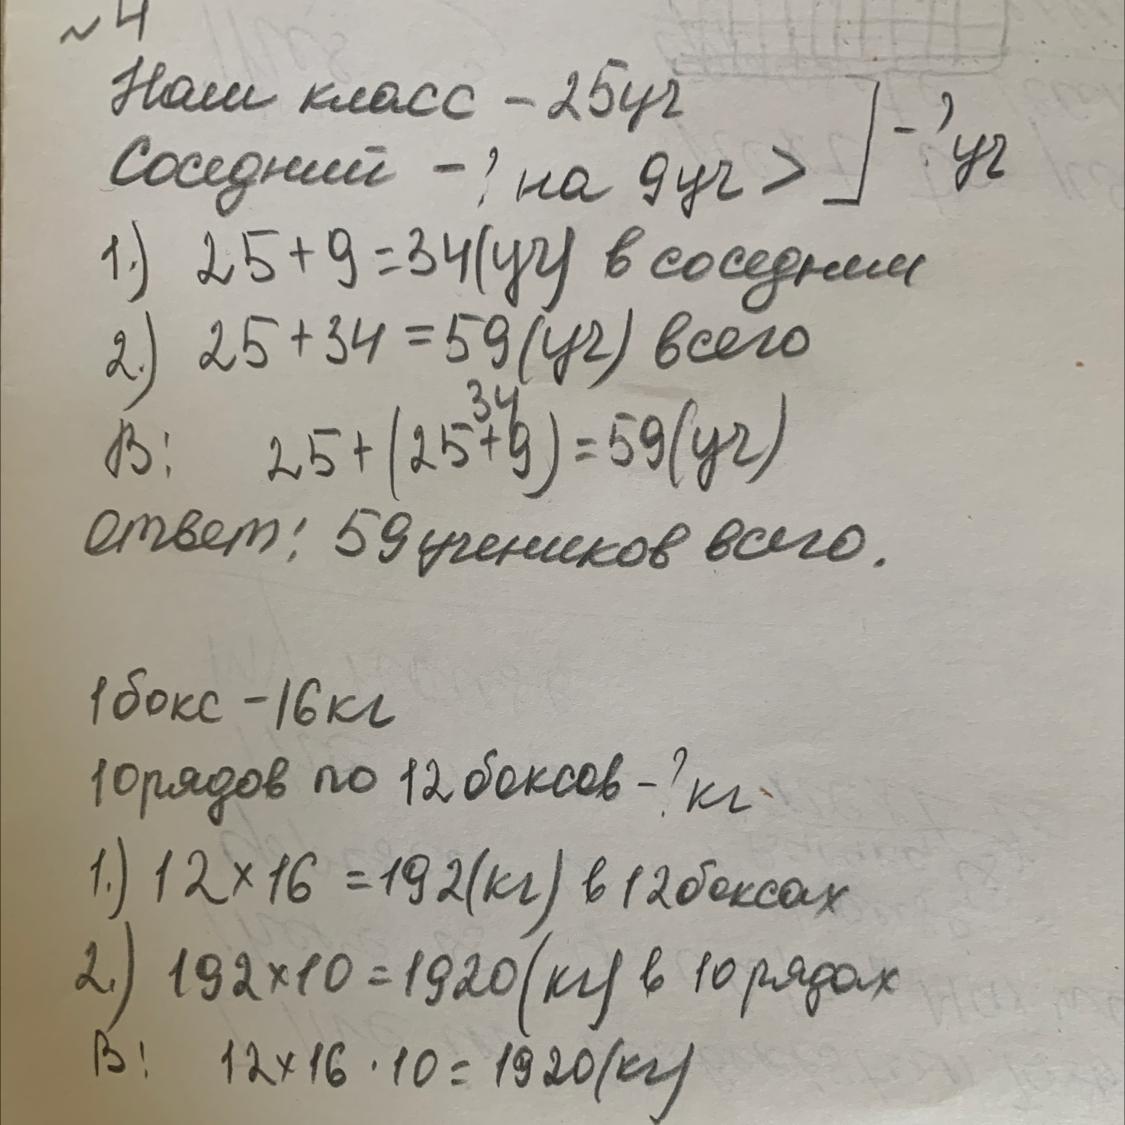 №4
Наш класс – 25уч
Соседний – ? на 9уч > ] – ? уч
1.) 25+9=34(уч) в соседним
2.) 25+34=59(уч) всего
34
В: 25+(25+9)=59(уч)
ответ: 59учеников всего.
1бокс – 16кг
10рядов по 12боксов – ? кг
1.) 12×16=192(кг) в 12боксах
2.) 192×10=1920(кг) в 10рядах
В: 12×16·10=1920(кг)